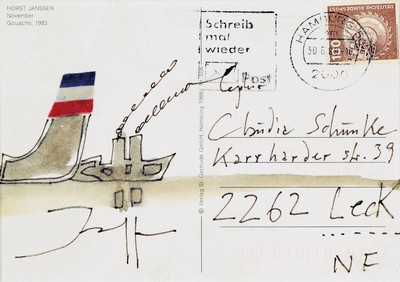 HORST JANSSEN
November
Gouache, 1983
Schreib
mal
wieder
Post
HAMBURG
2000
DEUTSCHE BUNDESPOST
© Verlag St. Gertrude GmbH, Hamburg
Claudia Schünke
Karrharder str. 39
2262 Leck
NF